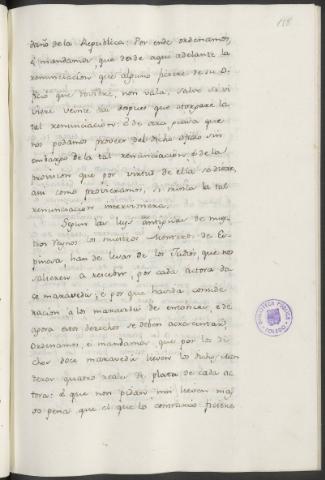 118
daño de la Republica. Por ende ordenamos,
è mandamos, que desde aqui adelante la
renunciacion que alguno ficiere de su O-
ficio que toviere, non vala, salvo si vi
viere veinte dias despues que otorgare la
tal renunciacion: è de otra guisa que
nos podamos proveer del dicho oficio sin
embargo de la tal renunciacion, è de la
provision que por virtud de ella se diere,
asi como proveeriamos, si nunca la tal
renunciacion interviniera.
Segun las leys antiguas de nues
tros Regnos los nuestros Monteros de Es-
pinosa, han de levar de los Judios, que nos
salieren a recebir, por cada atora do
ce maravedis, è por que havida conside
racion a los maravedis de entonces, è de
agora estos derechos se deben acrecentar,
Ordenamos, è mandamos, que por los di
chos doce maravedis lieven los dichos Mon
teros quatro reales de plata de cada a
tora: è que non pidan nin lieven mas
so pena que el que lo contrario ficiere
BIBLIOTECA PUBLICA
TOLEDO